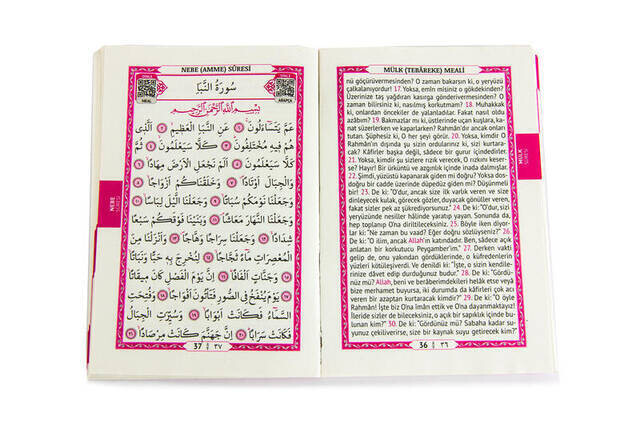 MÜLK (TEBÂREKE) MEALİ
nü göçürüvermesinden? O zaman bakarsın ki, o yeryüzü
çalkalanıyordur! 17. Yoksa, emin misiniz o gökdekinden?
Üzerinize taş yağdıran kasırga gönderivermesinden? O
zaman bilirsiniz ki, nasılmış korkutmam? 18. Muhakkak
ki, onlardan öncekiler de yalanladılar. Fakat nasıl oldu
azâbım? 19. Bakmazlar mı ki, üstlerinde uçan kuşlara, ka-
nat süzerlerken ve kaparlarken? Rahmân'dır ancak onları
tutan. Şüphesiz ki, O her şeyi görür. 20. Yoksa kimdir O
Rahmân'ın dışında şu sizin ordularınız ki, sizi kurtara-
cak? Kâfirler başka değil, sâdece bir gurur içindedirler.
21. Yoksa, kimdir şu sizlere rızık verecek, O rızkını kese-
rse? Hayır! Bir ürküntü ve azgınlık içinde inada dalmışlar.
22. Şimdi, yüzüstü kapanarak giden mi doğru? Yoksa dos-
doğru bir cadde üzerinde düpedüz giden mi? Düşünmeli
bir! 23. De ki: "O'dur, ancak size ilk varlık veren ve size
dinleyecek kulak, görecek gözler, duyacak gönüller veren,
fakat sizler pek az şükrediyorsunuz." 24. De ki: "O'dur, sizi
yeryüzünde nesiller hâlinde yaratıp yayan. Sonunda da,
hep toplanıp O'na diriltileceksiniz. 25. Böyle iken diyor-
lar ki: "Ne zaman bu vaad? Eğer doğru sözlüyseniz?" 26.
De ki: "O ilim, ancak Allah'ın katındadır. Ben, sâdece açık
anlatan bir korkutucuyum Peygamber'im." 27. Derken vakti
gelip de, onu yakından gördüklerinde, o küfredenlerin
yüzleri kötüleşiverdi. Ve denildi ki: "İşte, o sizin kendile-
rinize dâvet edip durduğunuz budur." 28. De ki: "Gördü-
nüz mü? Allah, beni ve berâberimdekileri helâk etse veya
bize merhamet buyursa, iki durumda da kâfirleri çok acı
veren bir azaptan kurtaracak kimdir?" 29. De ki: "O öyle
Rahmân! İşte biz O'na îmân ettik ve O'na dayanmaktayız!
İleride sizler de bileceksiniz, o açık bir sapıklık içinde bu-
lunan kim?" 30. De ki: "Gördünüz mü? Sabaha kadar su-
yunuz çekiliverirse, size bir kaynak suyu getirecek kim?"
MÜLK
SÛRESİ
36 ٣٦
NEBE (AMME) SÛRESİ
سُورَةُ النَّبَأِ
MEAL
ARAPÇA
بِسْمِ اللّٰهِ الرَّحْمٰنِ الرَّحِيمِ
عَمَّ يَتَسَٓاءَلُونَۚ ١ عَنِ النَّبَأِ الْعَظِيمِۙ ٢ اَلَّذِى
هُمْ فِيهِ مُخْتَلِفُونَۜ ٣ كَلَّا سَيَعْلَمُونَۙ ٤ ثُمَّ
كَلَّا سَيَعْلَمُونَ ٥ اَلَمْ نَجْعَلِ الْاَرْضَ مِهَادًاۙ ٦
وَالْجِبَالَ اَوْتَادًاۖ ٧ وَخَلَقْنَاكُمْ اَزْوَاجًاۙ ٨
وَجَعَلْنَا نَوْمَكُمْ سُبَاتًاۙ ٩ وَجَعَلْنَا الَّيْلَ لِبَاسًاۙ ١٠
وَجَعَلْنَا النَّهَارَ مَعَاشًاۖ ١١ وَبَنَيْنَا فَوْقَكُمْ سَبْعًا
شِدَادًاۙ ١٢ وَجَعَلْنَا سِرَاجًا وَهَّاجًاۖ ١٣ وَاَنْزَلْنَا مِنَ
الْمُعْصِرَاتِ مَٓاءً ثَجَّاجًاۙ ١٤ لِنُخْرِجَ بِهِ حَبًّا وَنَبَاتًاۙ ١٥
وَجَنَّاتٍ اَلْفَافًاۜ ١٦ اِنَّ يَوْمَ الْفَصْلِ كَانَ مِيقَاتًاۙ ١٧
يَوْمَ يُنْفَخُ فِى الصُّورِ فَتَأْتُونَ اَفْوَاجًاۙ ١٨ وَفُتِحَتِ
السَّمَٓاءُ فَكَانَتْ اَبْوَابًاۙ ١٩ وَسُيِّرَتِ الْجِبَالُ
فَكَانَتْ سَرَابًاۜ ٢٠ اِنَّ جَهَنَّمَ كَانَتْ مِرْصَادًاۙ ٢١
NEBE
SÛRESİ
37 ٣٧